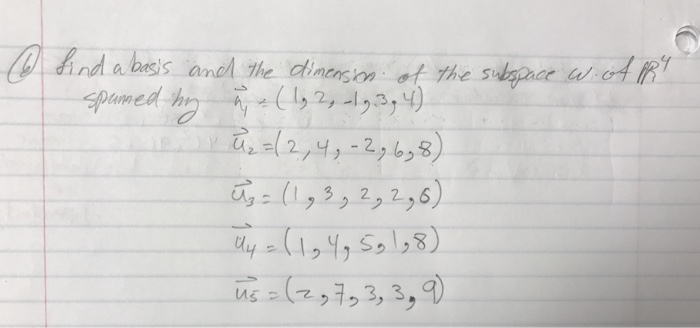 ⑥ find a basis and the dimension of the subspace W of ℝ⁴
spanned by u⃗₁ = (1, 2, -1, 3, 4)
u⃗₂ = (2, 4, -2, 6, 8)
u⃗₃ = (1, 3, 2, 2, 6)
u⃗₄ = (1, 4, 5, 1, 8)
u⃗₅ = (2, 7, 3, 3, 9)